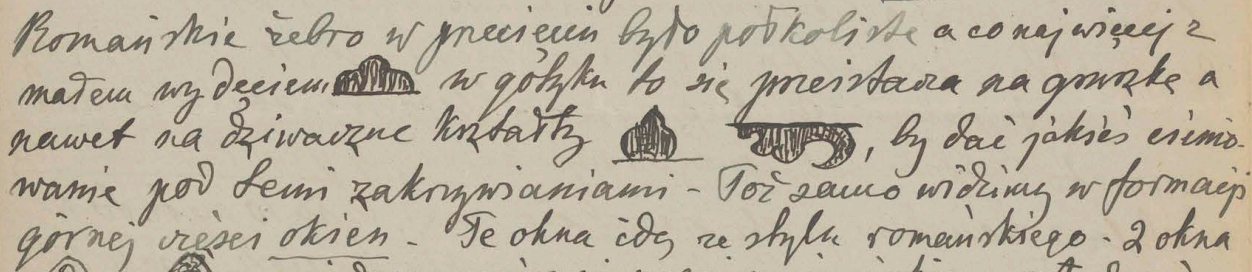 Romańskie żebro w przecięciu było półkoliste a co najwięcej z
małem wydęciem w gotyku to się przeistacza na gruszkę a
nawet na dziwaczne kształty , by dać jakieś cienio-
wanie pod temi zakrzywianiami - Toż samo widzimy w formacji
górnej części okien - Te okna idą ze stylu romańskiego - 2 okna